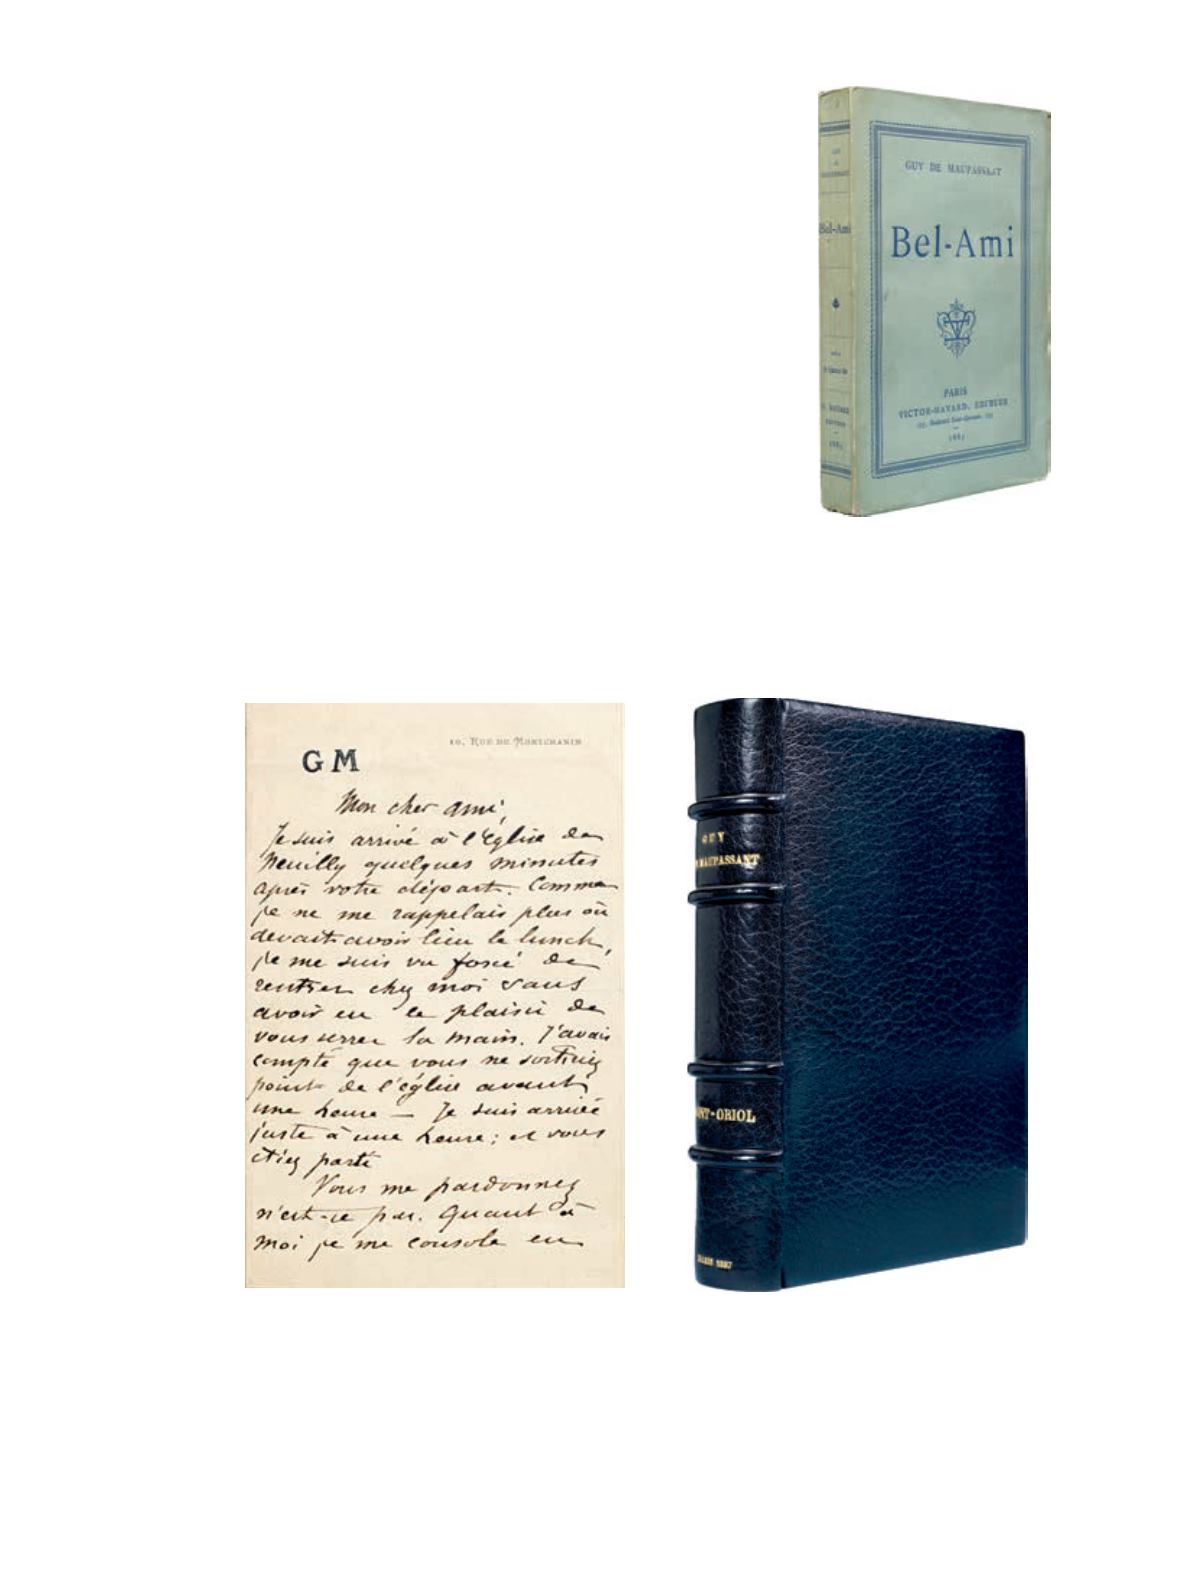 GUY DE MAUPASSANT
Bel-Ami
PARIS
VICTOR-HAVARD, ÉDITEUR
1885
Bel-Ami
10, RUE DE MONTCHANIN
GM
Mon cher ami,
Je suis arrivé à l'église de
Neuilly quelques minutes
après votre départ. Comme
je ne me rappelais plus où
devait avoir lieu le lunch,
je me suis vu forcé de
rentrer chez moi sans
avoir eu le plaisir de
vous serrer la main. J'avais
compté que vous ne sortiriez
point de l'église avant
une heure — Je suis arrivé
juste à une heure ; et vous
étiez parti
Vous me pardonnez
n'est-ce pas. Quant à
moi je me console en
GUY
MAUPASSANT
ONT-ORIOL
PARIS 1887